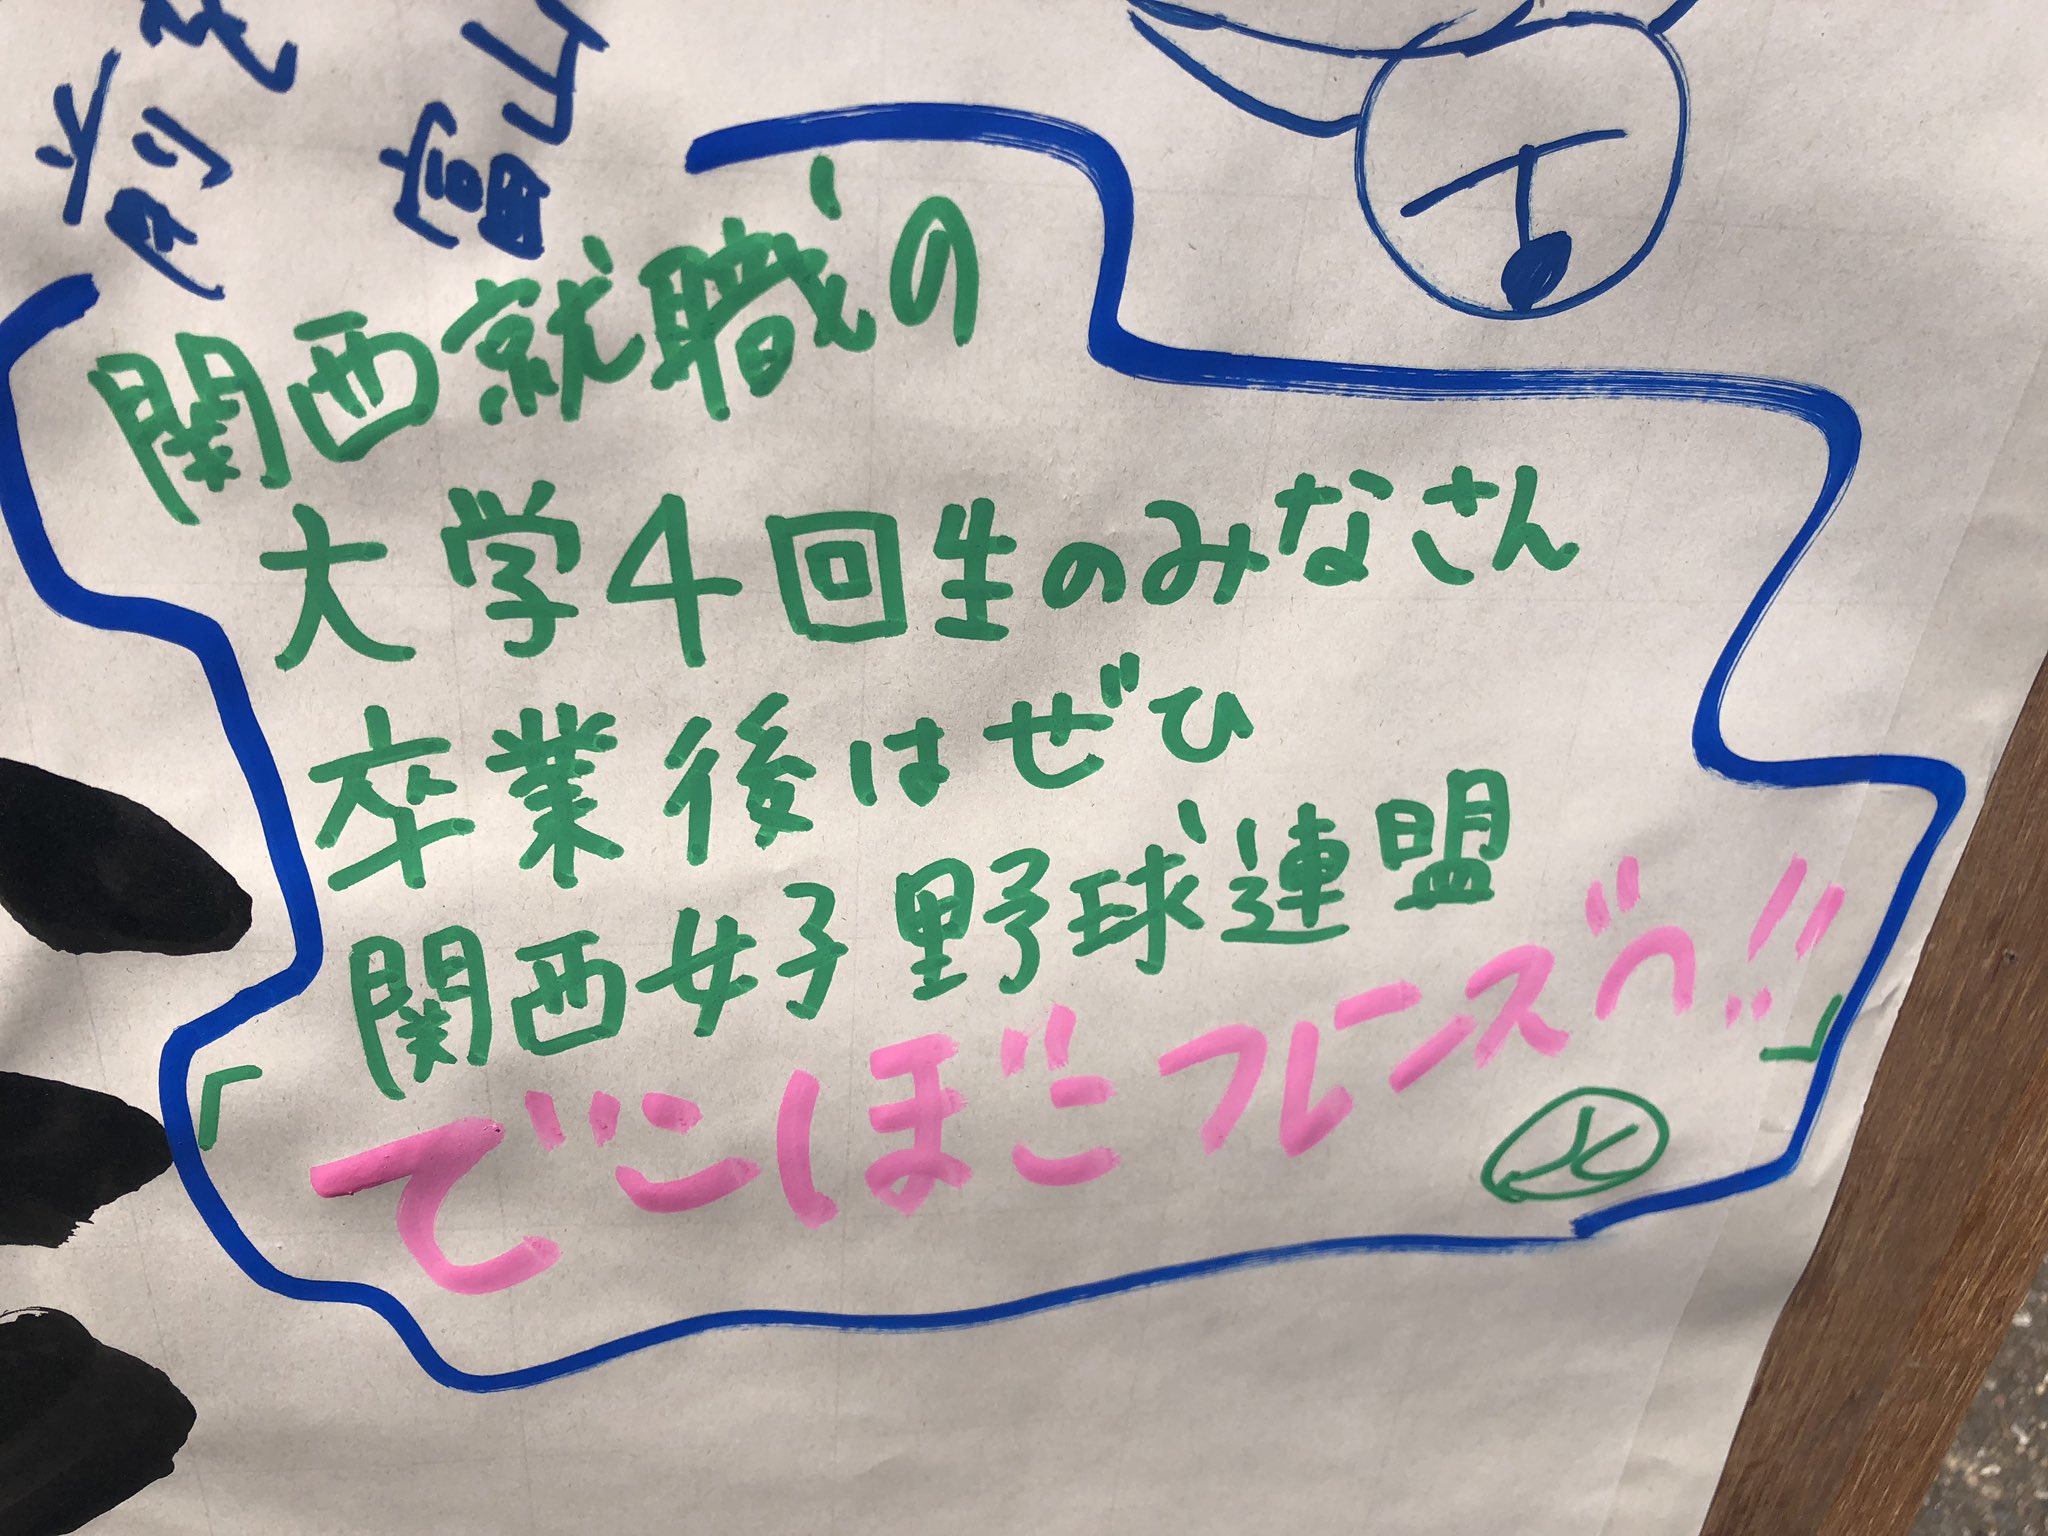 関西就職の
大学4回生のみなさん
卒業後はぜひ
関西女子野球連盟
「でこぼこフレンズへ!!」
富山